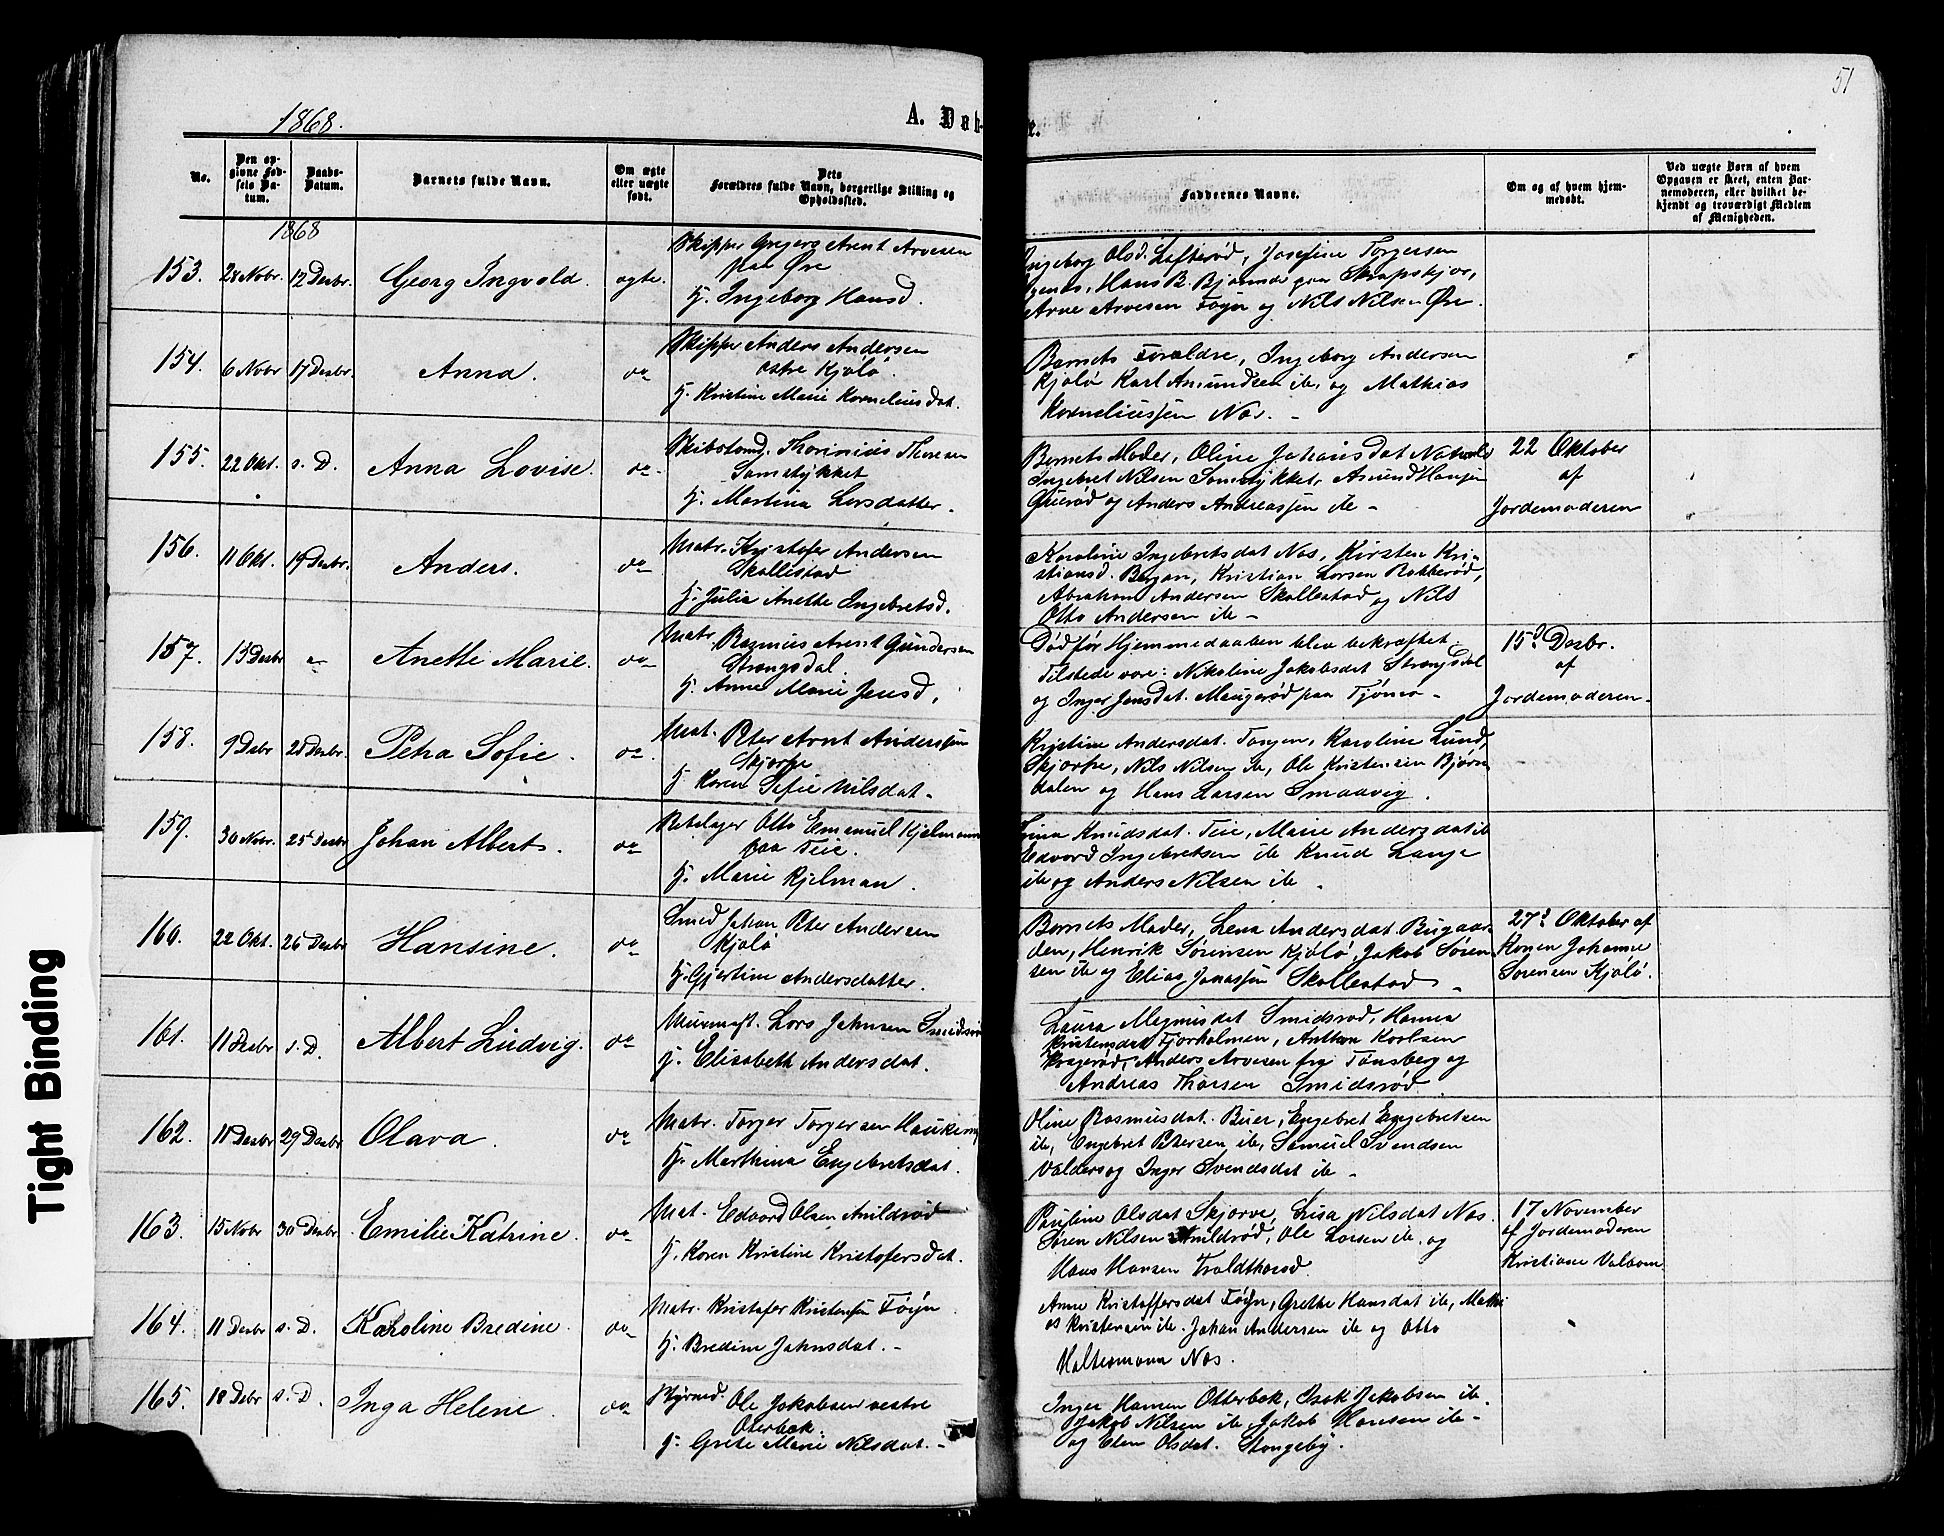 51
1868.
A. Døb-
e.
No.
Den op-
givne Fød-
sels Da-
tum.
Daabs-
Datum.
Barnets fulde Navn.
Om ægte
eller uægte
født.
Dets
Forældres fulde Navn, borgerlige Stilling og
Opholdssted.
Faddernes Navne.
Om og af hvem hjem-
medøbt.
Ved uægte Børn af hvem
Opgaven er skeet, enten Bar-
nemoderen, eller hvilket be-
kjendt og troværdigt Medlem
af Menigheden.
1868
153. 28 Nobr. 12 Desbr. Georg Ingvold. ægte.
Skipper Gregers Arent Arvesen
paa Øre
H. Ingeborg Hansd.
Ingeborg Olsd. Lofterød, Josefine Torgersen
Hans B. Bjønnes paa
Arne Arvesen Føyn og Nils Nilsen Øre.
154. 6 Nobr 17 Desbr. Anna. do
Skipper Anders Andersen
østre Kjølø.
H. Kristine Marie Korneliusdat.
Barnets Forældre, Ingeborg Andersen
Kjølø Karl Amundsen ib. og Mathias
Korneliussen Næs. -
155. 22 Okt. s. D. Anna Lovise. do
Skibstømd. Thorinius Thoresen
Somstykket
H. Martina Larsdatter.
Barnets Moder, Oline Johansdat
Ingebret Nilsen Somstykket, Amund Hansen
og Anders Andreassen ib -
22 Oktober
af
Jordemoderen
156. 11 Okt. 19 Desbr. Anders. do
Matr. Kristofer Andersen
Skallestad
H. Julia Anette Ingebretsd.
Karoline Ingebretsdat Næs, Kirsten Kri-
stiansd. Bergan, Kristian Larsen Rakkerød,
Abraham Andersen Skallestad og Nils
Otto Andersen ib -
157. 15 Desbr Anette Marie. do
Matr. Rasmus Arent Gundersen
Strengsdal.
H. Anne Marie Jensd.
Død før Hjemmedaaben blev bekræftet.
Tilstede vare: Nikoline Jakobsdat Strengsdal
og Inger Jensdat. Maugerød paa Tjømø -
15d Desbr.
af
Jordemoderen.
158. 9 Desbr 25 Desbr. Petra Sofie. do
Mat. Peter Arnt Anderssen
Skjærpe
H. Karen Sofie Nilsdat -
Kristine Andersdat. Torgen, Karoline Lund,
Skjærpe, Nils Nilsen ib, Ole Kristensen Bjørn-
dalen og Hans Larsen Smaavig.
159. 30 Nobr. 25 Desbr Johan Albert. do
Rebslager Otto Emanuel Kjelmann
paa Teie.
H. Marie Kjelman.
Knudsdat. Teie, Marie Andersdat ib
Edvard Ingebretsen ib Knud Lange
ib og Anders Nilsen ib -
160. 22 Okt. 26 Desbr Hansine. do
Smed Johan Peter Andersen
Kjølø
H. Gjertine Andersdatter.
Barnets Moder, Lena Andersdat Bugaar-
den, Henrik Sørensen Kjølø, Jakob Søren-
sen ib og Elias Jonassen Skallestad -
27d Oktober af
Konen Johanne
Sørensen Kjølø.
161. 11 Desbr s. D. Albert Ludvig. do
Murmest. Lars Johnsen Smidsrød
H. Elisabeth Andersdat.
Laura Magnusdat Smidsrød, Hanna
Kristensdat Fjærholmen, Anthon Karlsen
Kragerød, Anders Arvesen fra Tønsberg og
Andreas Thorsen Smidsrød
162. 11 Desbr 29 Desbr Olava. do
Matr. Torger Torgersen
H. Marthina Engebretsdat.
Oline Rasmusdat. Buer, Engebret Engebretsen
ib, Engebret Petersen ib, Samuel Svendsen
Valders og Inger Svendsdat ib -
163. 15 Nobr 30 Desbr. Emilie Katrine. do
Mat. Edvard Olsen Arildsrød
H. Karen Kristine Kristofersdat.
Pauline Olsdat Skjærve, Lisa Nilsdat Næs.
Søren Nilsen Arildsrød, Ole Larsen ib. og
Hans Hansen
17 November
af Jordemoderen
Kristiane
164. 11 Desbr s. D. Karoline Bredine. do
Matr. Kristofer Kristensen Føyn
H. Bredine Johnsdat. -
Anne Kristoffersdat Føyn, Grethe Hansdat ib, Mathi-
as Kristensen ib. Johan Andersen ib og Otto
Næs.
165. 18 Desbr s. D. Inga Helene. do
Ole Jakobsen vestre
Oterbæk.
H. Grete Marie Nilsdat. -
Inger Hansen Otterbæk, Isak Jakobsen ib.
Jakob Nilsen ib Jakob Hansen ib -
og Elen Olsdat. Stangeby.
Tight Binding